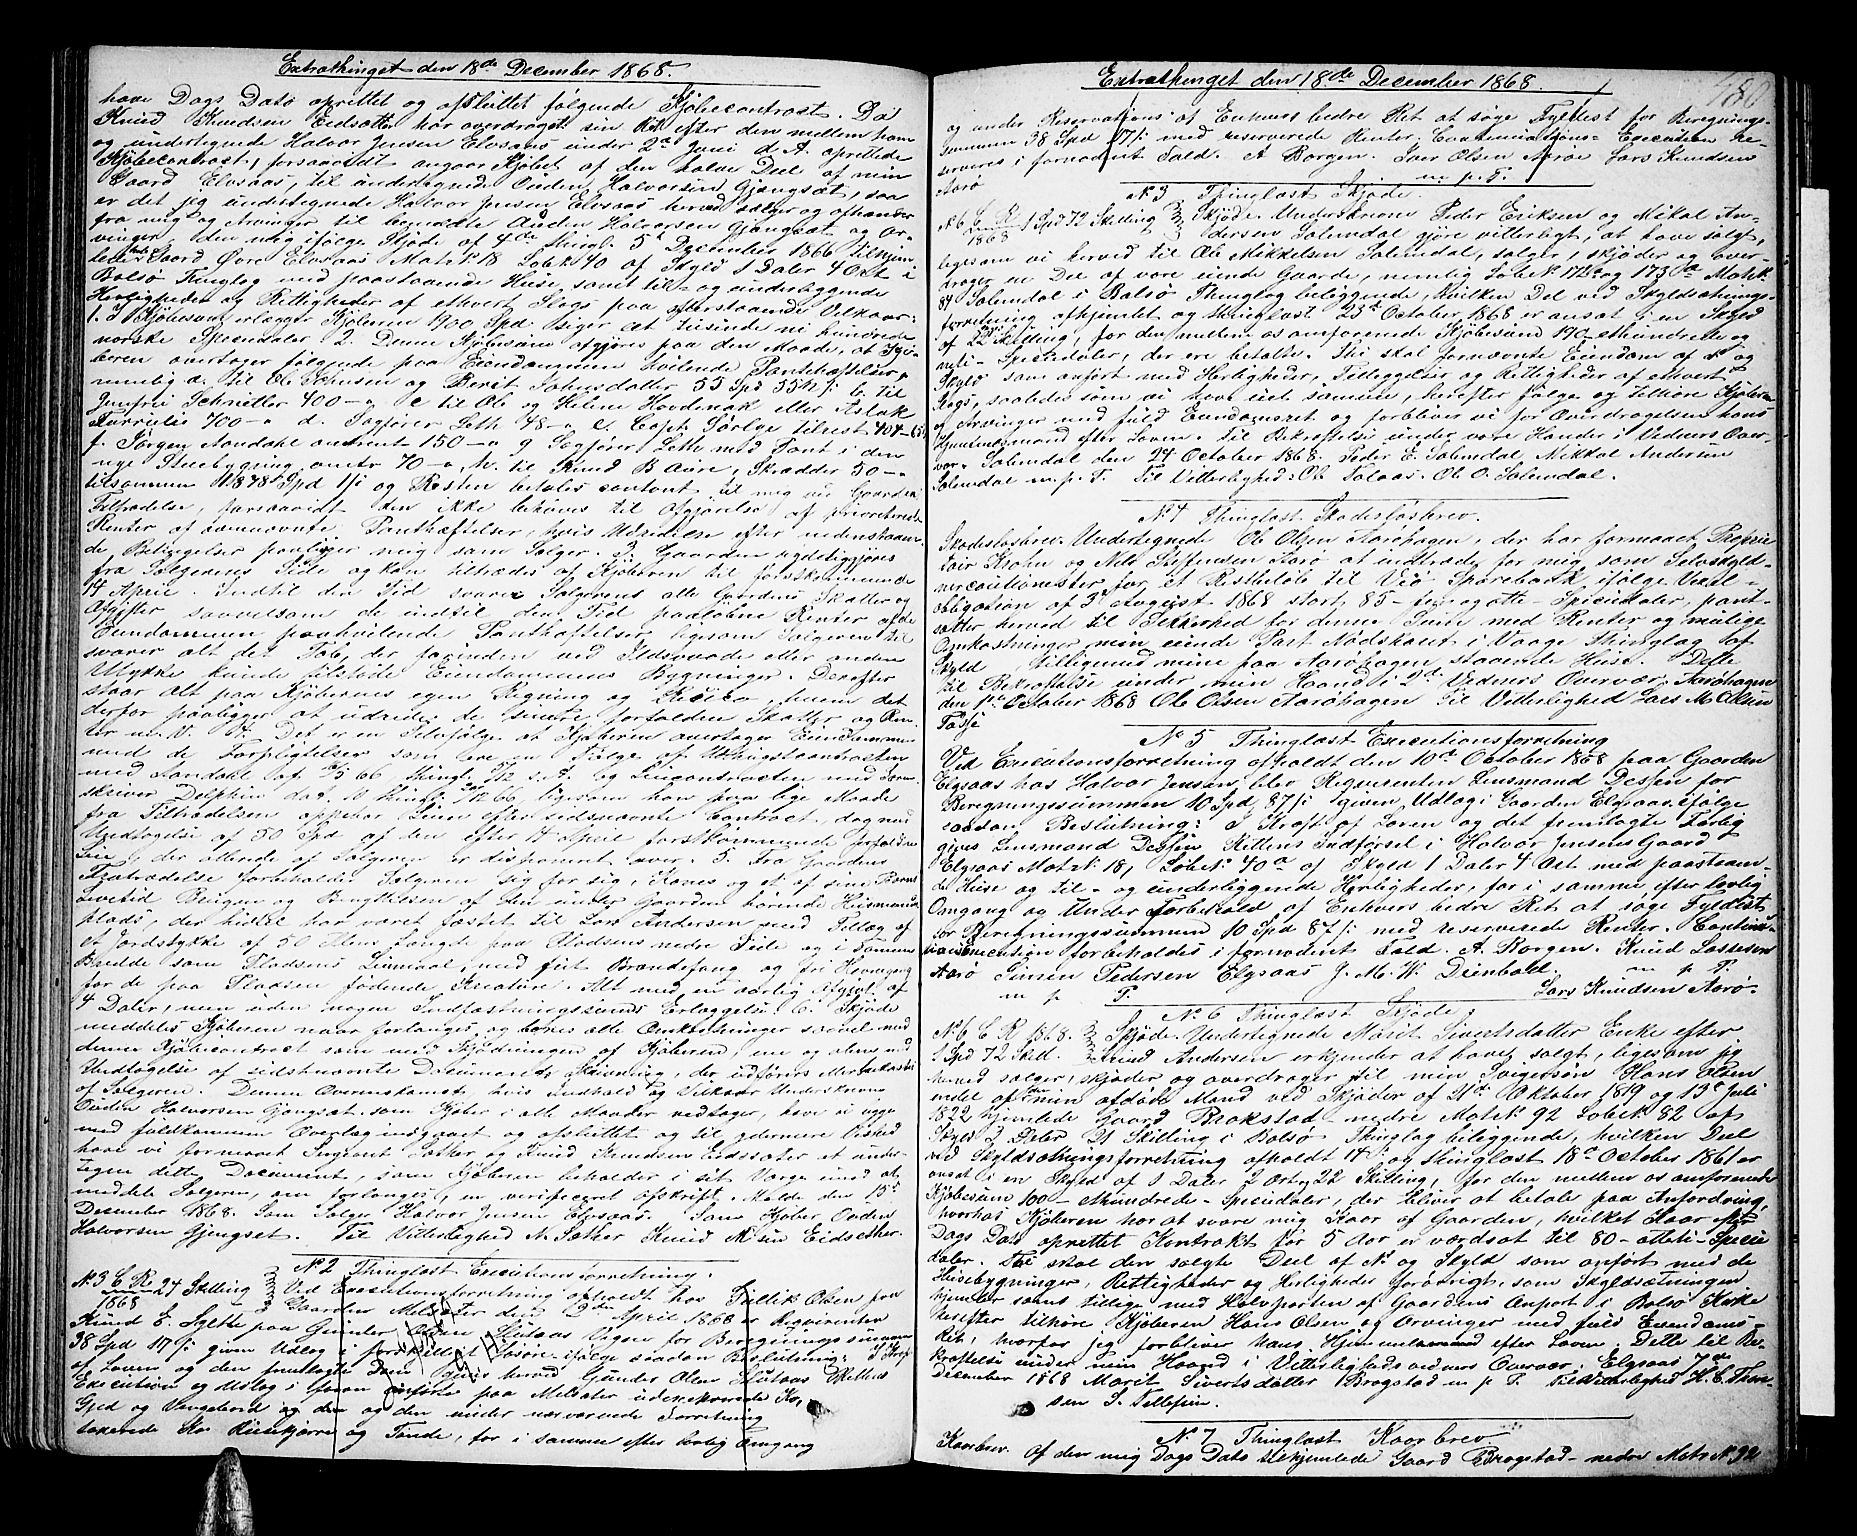 Extrathinget den 18de December 1868.
have Dags Dato oprettet og afsluttet følgende Kjøbecontract. Da
Knud Knudsen Eidsætter har overdraget sin Ret efter den mellem ham
og undertegnede Halvor Jensen Elvsaas under 2den Juni d. A. oprettede
Kjøbecontract, forsaavidt angaar Kjøbet af den halve Deel af min
Gaard Elvsaas, til undertegnede Ouden Halvorsen Gjængsæt, saa
er det jeg undertegnede Halvor Jensen Elvsaas herved sælger og afhænder
fra mig og Arvinger til bemeldte Ouden Halvorsen Gjængsæt og Ar-
vinger, den mig ifølge Skjøde af 4de thingl. 5te December 1866 tilhjem-
lede Gaard Øvre Elvsaas Matr. N. 18 Løbe N. 40 af Skyld 1 Daler 4 Ort i
Bolsø Thinglag med paastaaende Huse samt til- og underliggende
Herligheder og Rettigheder af ethvert Slags paa efterstaaende Vilkaar:
1. I Kjøbesum erlægger Kjøberen 1900 Spd siger et tusinde ni hundrede
norske Speciedaler. 2. Denne Kjøbesum afgjøres paa den Maade, at Kjø-
beren overtager følgende paa Eiendommen hvilende Panthæftelser,
nemlig a. til Ole Johnsen og Berit Johnsdatter 55 Spd b. til
Jomfru Schnitler 400- c. til Ole og Helene Hovdenak eller Aslak
700- d. Sagfører Leth 48- e. Capt. tilrest
f. Jørgen Aandahl omtrent 150- g. Sagfører Leth med Pant i den
nye Stuebygning omtr. 70- h. til Knud B. Aure, Skrædder 50-
tilsammen 1878 Spd 1 ß og Resten betales contant til mig ved Gaardens
Tiltrædelse, forsaavidt den ikke behøves til Afgjørelse af
Renter af fornævnte Panthæftelser, hvis Udredelse efter nedenstaaen-
de Betingelser paaligger mig som Sælger. 3. Gaarden ryddeliggjøres
fra Sælgerens Side og kan tiltrædes af Kjøberen til førstkommende
14 April. Indtil den Tid svarer Sælgeren alle Gaardens Skatter og
Afgifter saavelsom de indtil den Tid paaløbne Renter af de
Eiendommen paahvilende Panthæftelser, ligesom Sælgeren til-
svarer alt det Tab, der forinden ved Ildsvaade eller anden
Ulykke kunde tilstøde Eiendommens Bygninger. Derefter
staar alt paa Kjøberens egen Regning og Risico, hvem det
derfor paaligger at udrede de senere forfaldne Skatter og Ren-
ter m. V. 4. Det er en Selvfølge, at Kjøberen overtager Eiendommen
med de Forpligtelser som ere en Følge af Udskiftscontracten
med Aandahl af 5/5 66 thingl. /12 s. A. og Leiecontracten med Soren-
skriver Delphin dat. og thingl. /12 66 ligesom han paa lige Maade
fra Tiltrædelsen oppebær Leien efter sidstnævnte Contract, dog med
Undtagelse af 50 Spd af den efter 14 April førstkommende forfaldne
Leie, der allerede af Sælgeren er disponeret over. 5. Fra Gaardens
Fratrædelse forbeholder Sælgeren sig for sig, Kones og et af sine Børns
Levetid Brugen og Benyttelsen af den under Gaarden hørende Huusmands-
plads, der hidtil har været fæstet til Lars Andersen med Tillæg af
et Jordstykke af 50 Alens Længde paa Pladsens nedre Side og i samme
Bredde som Pladsens Linmaal, med frit Brændefang og fri Havnegang
for de paa Pladsen fødende Kreature. Alt mod en aarlig Afgift af
4 Daler, men uden nogen Indfæstningssums Erlæggelse. 6. Skjøde
meddeles Kjøberen naar forlanges, og bæres alle Omkostninger saavel med
denne Kjøbecontract som med Skjødningen af Kjøberen, ene og alene med
Undtagelse af sidstnævnte Documents Skrivning, der udføres
af Sælgeren. Denne Overenskomst, hvis Indhold og Vilkaar Underskrevne
Ouden Halvorsen Gjængsæt som Kjøber i alle Maader vedtager, have vi
med fuldkommen Overlæg indgaaet og afsluttet og til ydermere Vished
have vi formaaet Sergeant Sæther og Knud Knudsen Eidssæter at under-
tegne dette Document, som Kjøberen beholder i sit Værge imod at
meddele Sælgeren, om forlanges, en verificeret Afskrift. Molde den 15de
December 1868. Som Sælger Halvor Jensen Elvsaas. Som Kjøber Ouden
Halvorsen Gjengset. Til Vitterlighed N. Sæther Knud Knudsen Eidsether.
No 2 Thinglæst Executionsforretning.
N. 3 C. R. 24 Skilling Ved Executionsforretning afholdt hos Tøllik Olsen paa
1868 Gaarden Melsæter den 2den April 1868 er Reqvirenten
Knud E. Sylte paa Gunder Olsen Hustaas Vegne for Beregningssummen
38 Spd 17 ß given Udlag i forskjelligt Løsøre ifølge saadan Beslutning: I Kraft
af Loven og den fremlagte Dom gives herved Gunder Olsen Hustaas Rettens
Execution og Udlag i foran anførte paa Melsæter udenskrevne Ko,
Gjed og Vengebord og den og den under nærværende Forretning
takserede Ko Rusekjærre og Tønde, for i samme efter lovlig Omgang
Extrathinget den 18de December 1868.
480
og under Reservation af Enhvers bedre Ret at søge Fyldest for Beregnings-
summen 38 Spd 17 ß med reserverede Renter. Continuations-Execution re-
serveres i fornødent Fald. A Borgen. Iver Olsen Aarøe Lars Knudsen
Aarø m. p. P.
No 3 Thinglæst Skjøde
N. 6 C. R. 1 Spd 72 Skilling Skjøde. Underskrevne Peder Eriksen og Mikal An-
1868 dersen Solemdal gjøre vitterligt, at have solgt,
ligesom vi herved til Ole Mikkelsen Solemdal, sælger, skjøder og over-
drager en Del af vore eiende Gaarde, nemlig Løbe N. 172a og 173a Matr. N.
84 Solemdal i Bolsø Thinglag beliggende, hvilken Del ved Skyldsætnings-
forretning afhjemlet og thinglæst 23de October 1868 er ansat i en Skyld
af 22 Skilling, for den mellem os omforenede Kjøbesum 190- ethundrede og
niti- Speciedaler, der ere betalte. Thi skal fornævnte Eiendom af N. og
Skyld som anført med Herligheder, Tilliggelser og Rettigheder af ethvert
Slags, saaledes som vi have eiet samme, herefter følge og tilhøre Kjøberen
og Arvinger med fuld Eiendomsret og forbliver vi for Overdragelsen hans
Hjemmelsmænd efter Loven. Til Bekræftelse under vore Hænder i Vidners Over-
vær. Solemdal den 24 October 1868. Peder E. Solemdal, Mikkal Andersen
Solemdal m. p. P. Til Vitterlighed: Ole Talaas. Ole O. Solemdal.
No 4 Thinglæst Skadesløsbrev.
Skadesløsbrev. Undertegnede Ole Olsen Aarøhagen, der har formaaet Proprie-
tair Krohn og Nils Steffensen Aarø at indtræde for mig som Selvskyld-
nercautionister for et Restbeløb til Veø Sparebank ifølge Vexel-
obligation af 3de August 1868 stort, 85- fem og otte- Speciedaler, pant-
sætter herved til Sikkerhed for denne Sum med Renter og mulige
Omkostninger min eiende Part Nødskaut i Vaage Thinglag af
Skyld , tilligemed mine paa Aarøhagen staaende Huse. Dette
til Bekræftelse under min Haand i 2de Vidners Overvær. Aarøhagen
den 1ste October 1868 Ole Olsen Aarøhagen Til Vitterlighed Lars M. Olsen
Fosse
No 5 Thinglæst Executionsforretning
Ved Executionsforretning afholdt den 10de October 1868 paa Gaarden
Elgsaas hos Halvor Jensen blev Reqvirenten Lensmand Dessen for
Beregningssummen 10 Spd 87 ß given Udlæg i Gaarden Elgsaas ifølge
saadan Beslutning: I Kraft af Loven og det fremlagte Forlig
gives Lensmand Dessen Rettens Indførsel i Halvor Jensens Gaard
Elgsaas Matr. N. 18, Løbe N. 40a af Skyld 1 Daler 4 Ort med paastaaen-
de Huse og til- og underliggende Herligheder, for i samme efter lovlig
Omgang og Under Forbehold af Enhvers bedre Ret at søge Fyldest
for Beregningssummen 10 Spd 87 ß med reserverede Renter. Continu-
ations Execution forbeholdes i fornødent Fald. A. Borgen. Knud Lassesen
Aarø Simen Pedersen Elgsaas J. M. W. Dienbald. m p P.
m. p. P. Lars Knudsen Aarø
No 6 Thinglæst Skjøde
N. 6 C. R. 1868. Skjøde. Undertegnede Marit Sivertsdatter Enke efter
1 Spd 72 Skill. Knud Andersen erkjender at have solgt, ligesom jeg
herved sælger, skjøder og overdrager til min Svigersøn Hans Olsen
endel af min afdøde Mand ved Skjøder af 21de Oktober 1819 og 13de Juli
1822 hjemlede Gaard Brokstad nedre Matr. N. 92 Løbe N. 82 af
Skyld 2 Daler 21 Skilling i Bolsø Thinglag beliggende, hvilken Deel
ved Skyldsætningsforretning afholdt 14 og thinglæst 18de October 1861 er
ansat i en Skyld af 1 Daler 2 Ort 22 Skilling, for den mellem os omforenede
Kjøbesum 100- Et hundrede- Speciedaler, der bliver at betale paa Anfordring,
hvorhos Kjøberen har at svare mig Kaar af Gaarden, hvilket Kaar efter
Dags Dato oprettet Kontrakt for 5 Aar er værdsat til 80- otteti- Specie
daler. Thi skal den solgte Deel af N. og Skyld som anført med de
Huusbygninger, Rettigheder og Herligheder forøvrigt, som Skyldsætningen
hjemler samt tillige med Halvparten af Gaardens Anpart i Bolsø Kirke
herefter tilhøre Kjøberen Hans Olsen og Arvinger med fuld Eiendoms-
Ret, hvorfor jeg forbliver hans Hjemmelsmand efter Loven. Dette til Be-
kræftelse under min Haand i Vitterlighedsvidners Overvær. Elgsaas 7de
December 1868 Marit Sivertsdatter Brogstad m p P. Til Vitterlighed H. C. Thom-
sen S. Tellefsen.
No 7 Thinglæst Kaarbrev
Kaarbrev. Af den mig Dags Dato tilhjemlede Gaard Brogstad- nedre Matr. N. 92